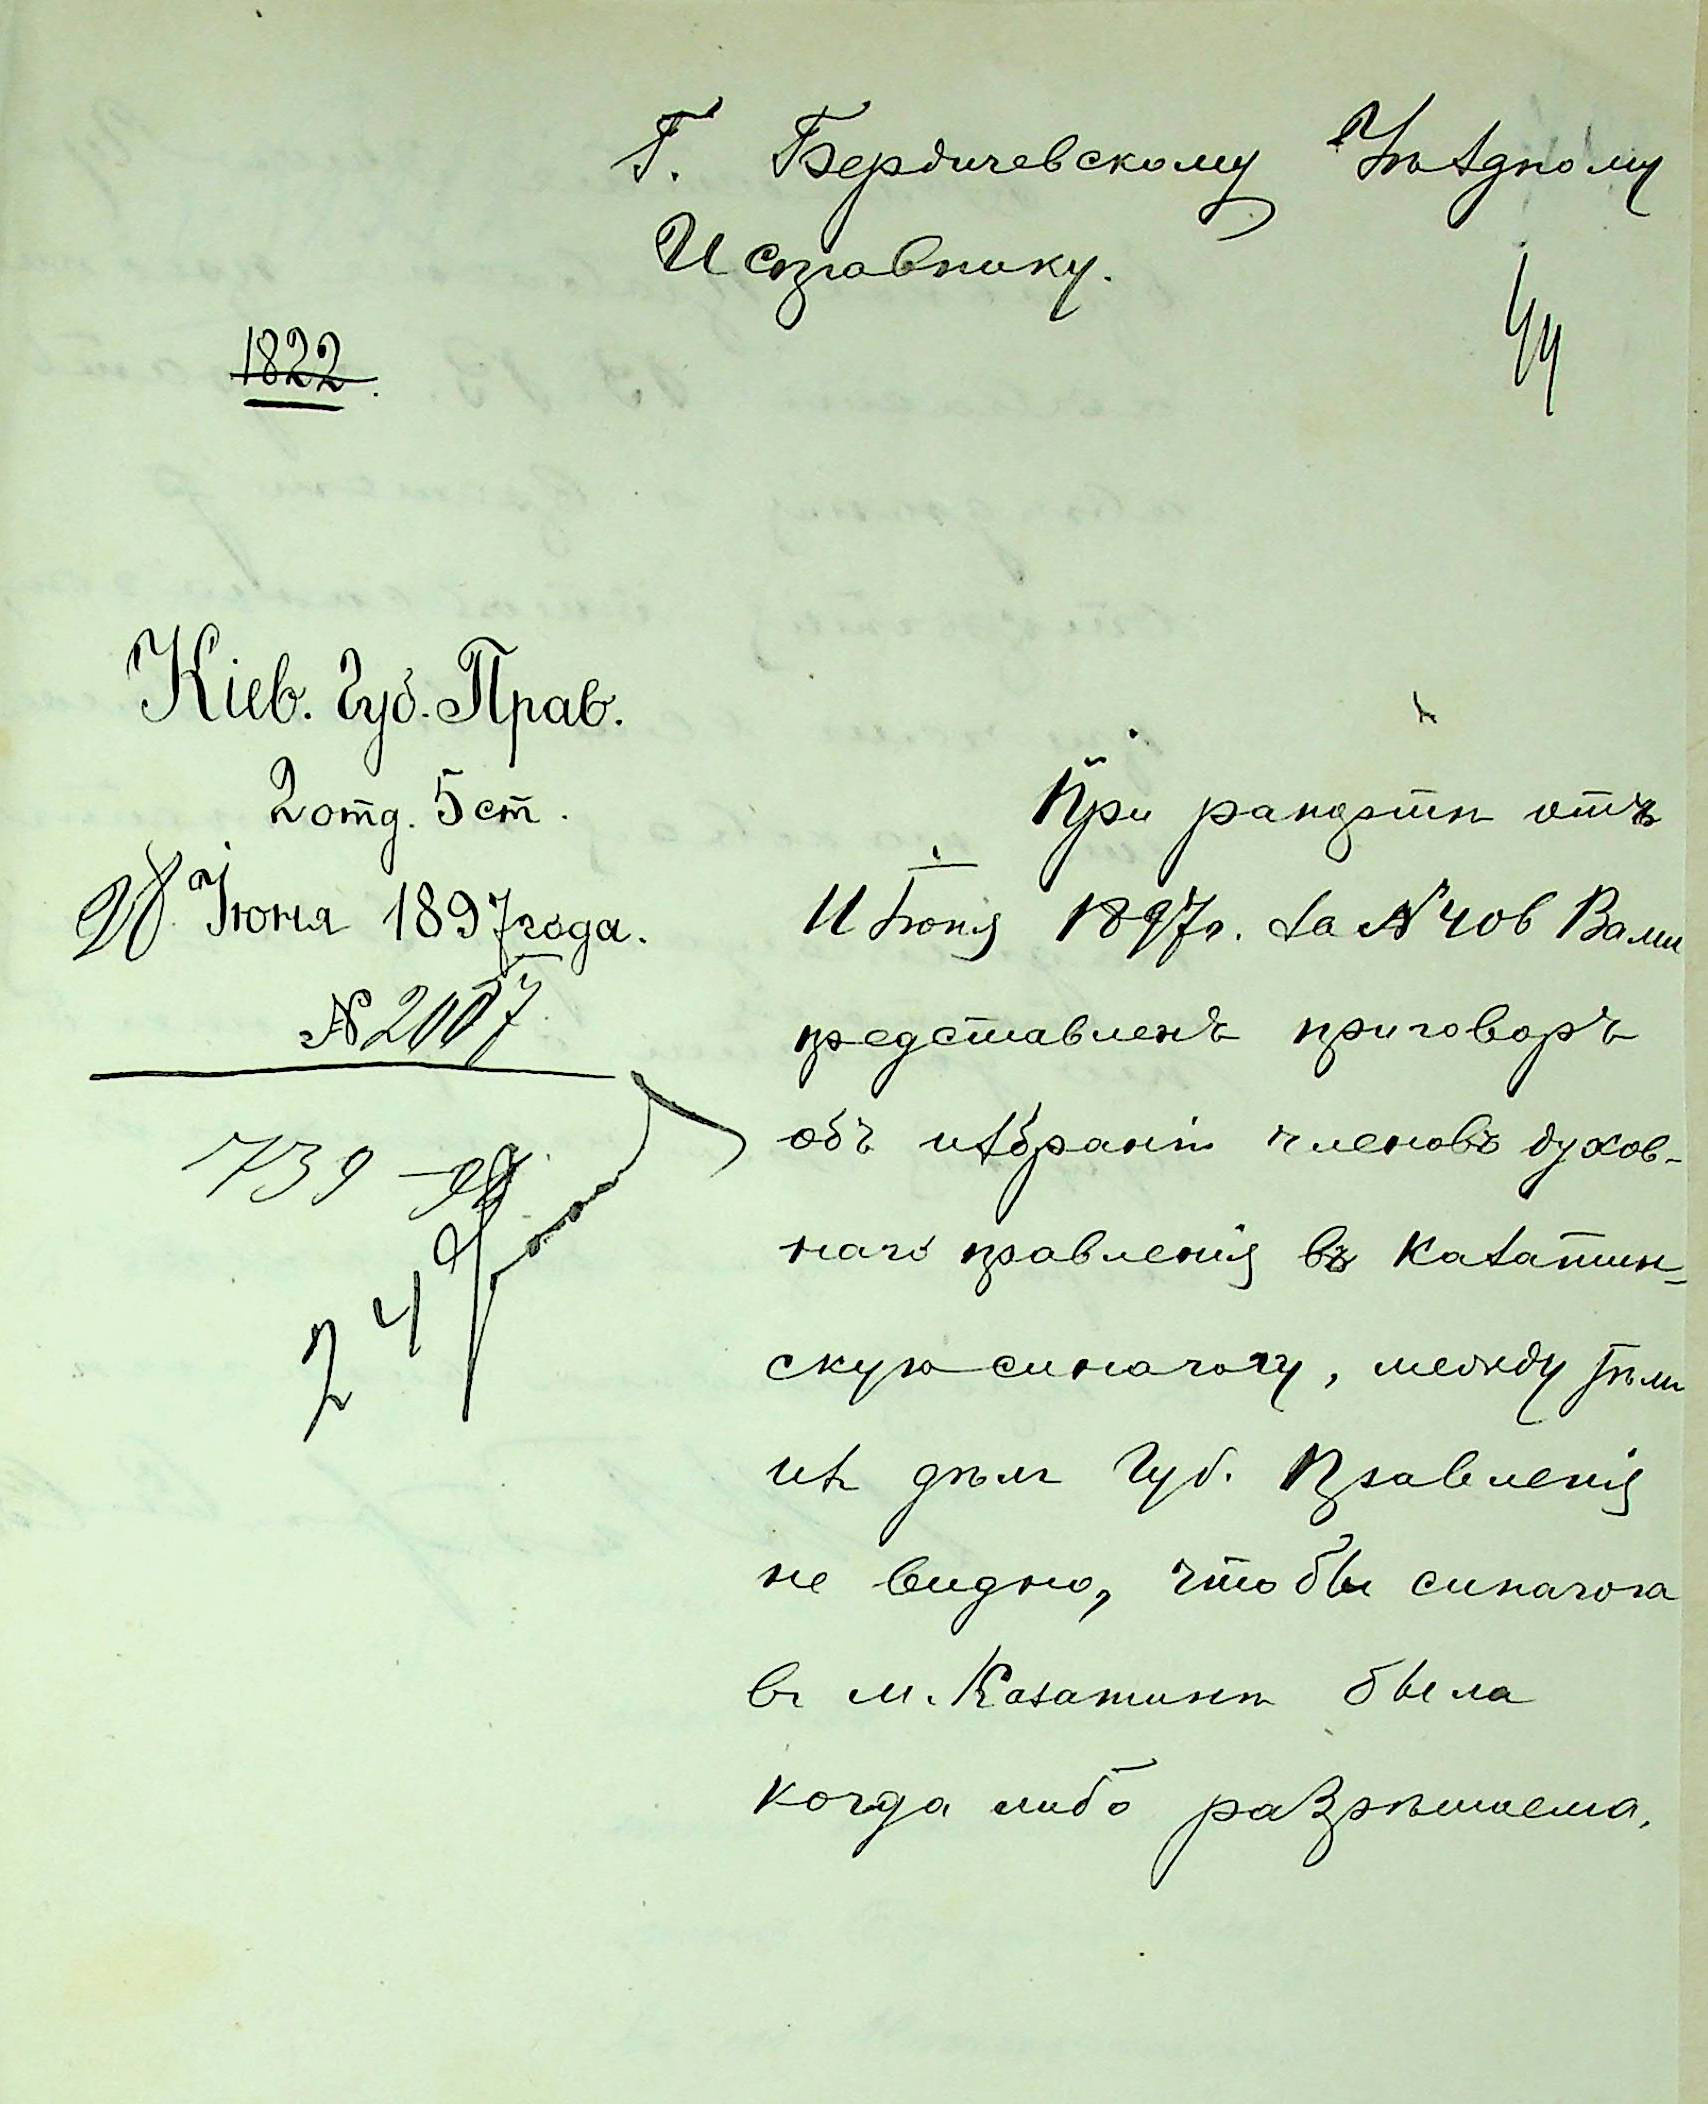 Г. Бердичевскому Уѣздному
Исправнику.
1822
44
Кіев. Губ. Прав.
2 отд. 5 ст.
28 Іюня 1897 года.
№ 2007
739
При рапортѣ отъ
11 Іюня 1897 г. за № 406 Вами
представленъ приговоръ
объ избраніи членовъ духов-
наго правленія въ Казатин-
скую синагогу, между тѣмъ
изъ дѣлъ Губ. Правленія
не видно, чтобы синагога
въ м. Казатинѣ была
когда либо разрѣшаема,